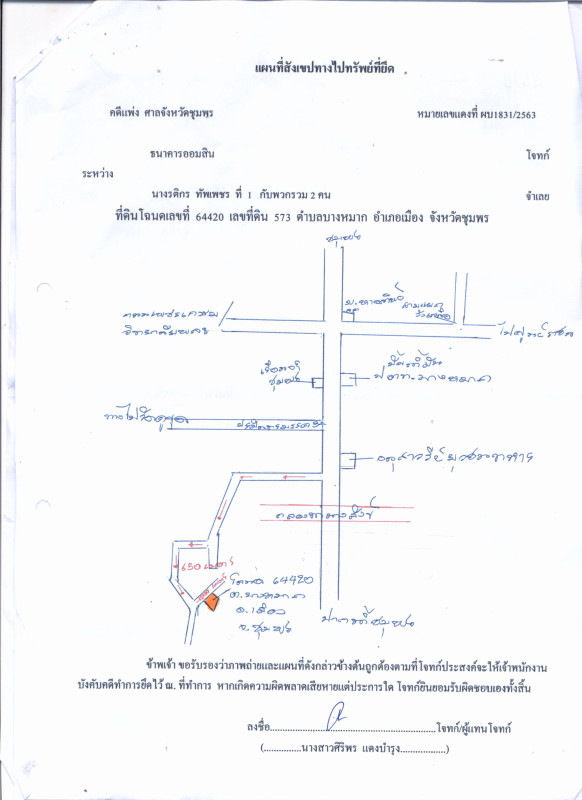 แผนที่สังเขปทางไปทรัพย์ที่ยึด
คดีแพ่ง ศาลจังหวัดชุมพร
หมายเลขแดงที่ ผบ1831/2563
ธนาคารออมสิน
โจทก์
ระหว่าง
นางรติกร ทัพเพชร ที่ 1 กับพวกรวม 2 คน
จำเลย
ที่ดินโฉนดเลขที่ 64420 เลขที่ดิน 573 ตำบลบางหมาก อำเภอเมือง จังหวัดชุมพร
ชุมพร
เรือนจำ
ชุมพร
ปั๊มน้ำมัน
ปตท. บางหมาก
650 เมตร
โฉนด 64420
ต. บางหมาก
อ. เมือง
จ. ชุมพร
ปากน้ำชุมพร
ข้าพเจ้า ขอรับรองว่าภาพถ่ายและแผนที่ดังกล่าวข้างต้นถูกต้องตามที่โจทก์ประสงค์จะให้เจ้าพนักงาน
บังคับคดีทำการยึดไว้ ณ. ที่ทำการ หากเกิดความผิดพลาดเสียหายแต่ประการใด โจทก์ยินยอมรับผิดชอบเองทั้งสิ้น
ลงชื่อ................................................โจทก์/ผู้แทนโจทก์
(..............นางสาวศิริพร แดงบำรุง.................)